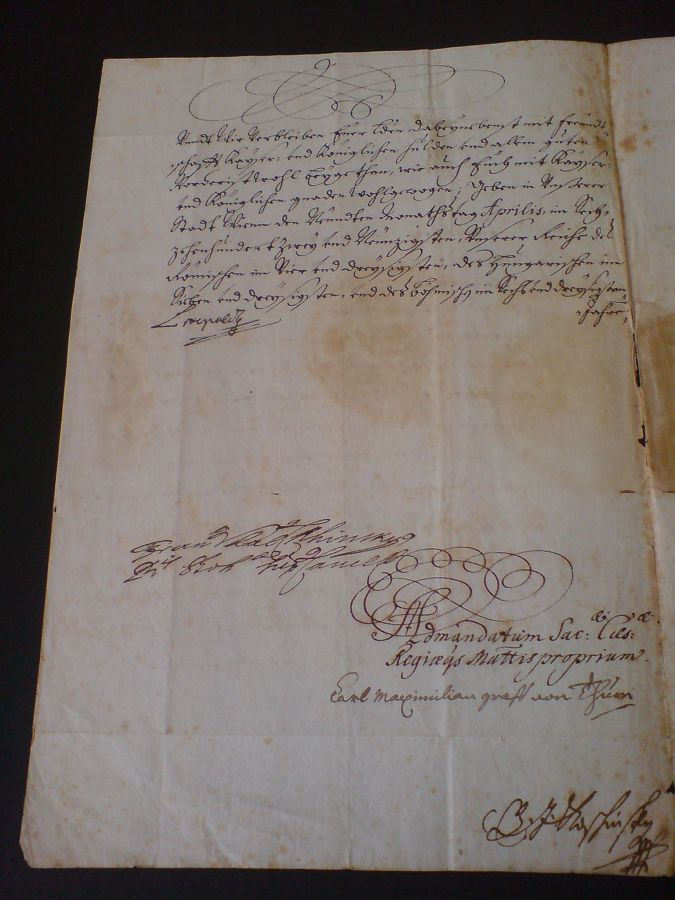 Undt Wir Verbleiben Euer Lden dabeynebenst mit freundt-
schafft Kayser: und Königlichen hulden und allem guten
Vorderist wohl beygethan, wie auch Euch mit Kayser:
und Königlichen gnaden wohlgewogen; Geben in Unserer
Stadt Wienn den Neundten Monathstag Aprilis, im Sech-
zehenhundert Zwey und Neünzigsten, Unserer Reiche des
Römischen im Vier und dreysigsten, des Hungarischen im
Siben und dreysigsten, und des böhmisch: im Sechs und dreysigsten
Jahre;
Leopoldt
Kinsky
Admandatum Sac: Cæs:
Regiæqs Mattis proprium.
Carl Maximilian graff von Thurn